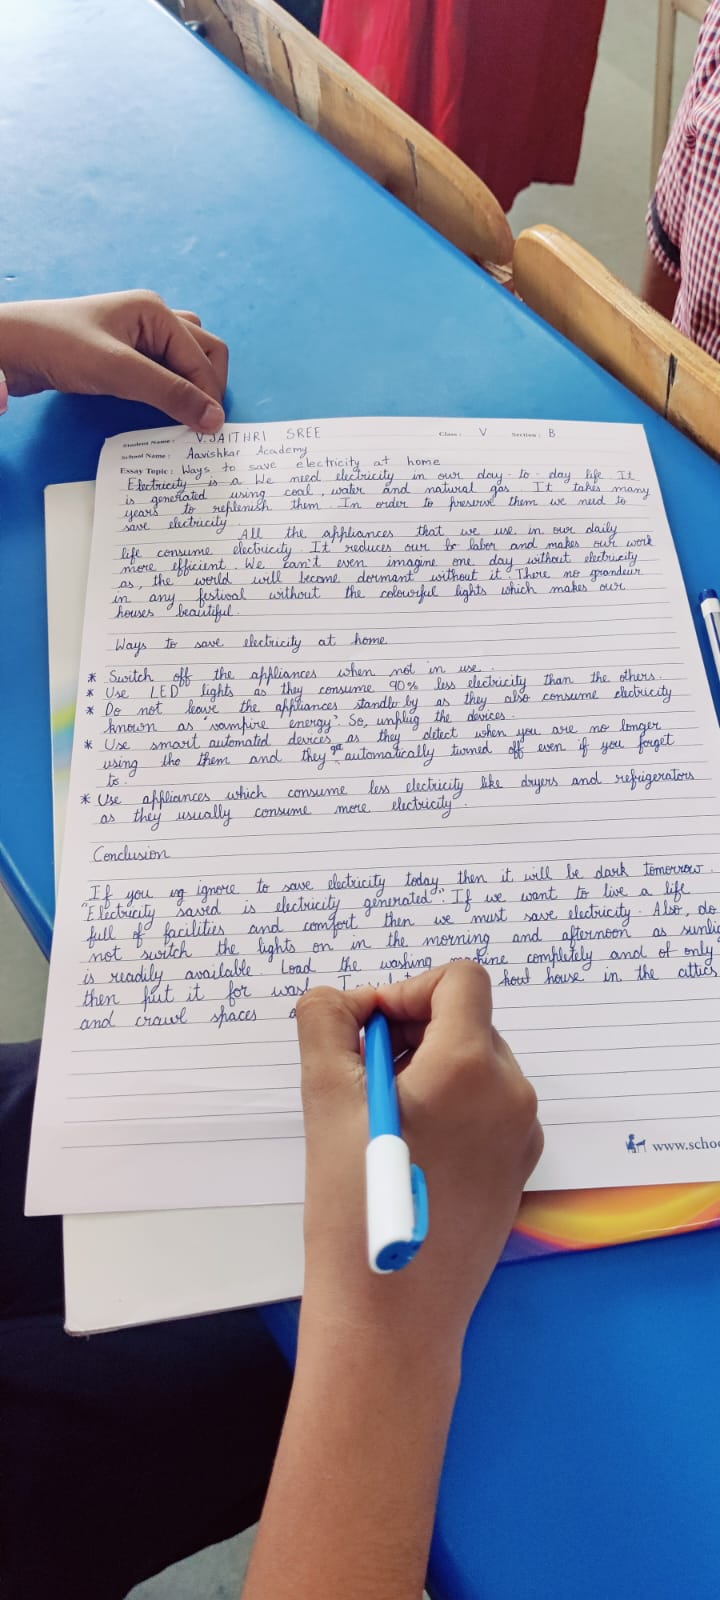 Student Name : V. JAITHRI SREE Class : V Section : B
School Name : Aavishkar Academy
Essay Topic : Ways to save electricity at home
Electricity is a We need electricity in our day-to-day life It
is generated using coal, water and natural gas. It takes many
years to replenish them. In order to preserve them we need to
save electricity.
All the appliances that we use in our daily
life consume electricity. It reduces our labor and makes our work
more efficient. We can't even imagine one day without electricity
as, the world will become dormant without it. There no grandeur
in any festival without the colourful lights which makes our
houses beautiful.
Ways to save electricity at home
* Switch off the appliances when not in use.
* Use LED lights as they consume 90% less electricity than the others.
* Do not leave the appliances standby as they also consume electricity
known as "vampire energy". So, unplug the devices.
* Use smart automated devices as they detect when you are no longer
using them and they get automatically turned off even if you forget
to.
* Use appliances which consume less electricity like dryers and refrigerators
as they usually consume more electricity.
Conclusion
"If you ignore to save electricity today then it will be dark tomorrow.
"Electricity saved is electricity generated". If we want to live a life
full of facilities and comfort then we must save electricity. Also, do
not switch the lights on in the morning and afternoon as
is readily available. Load the washing machine completely and of only
then put it for house in the attics
and crawl spaces